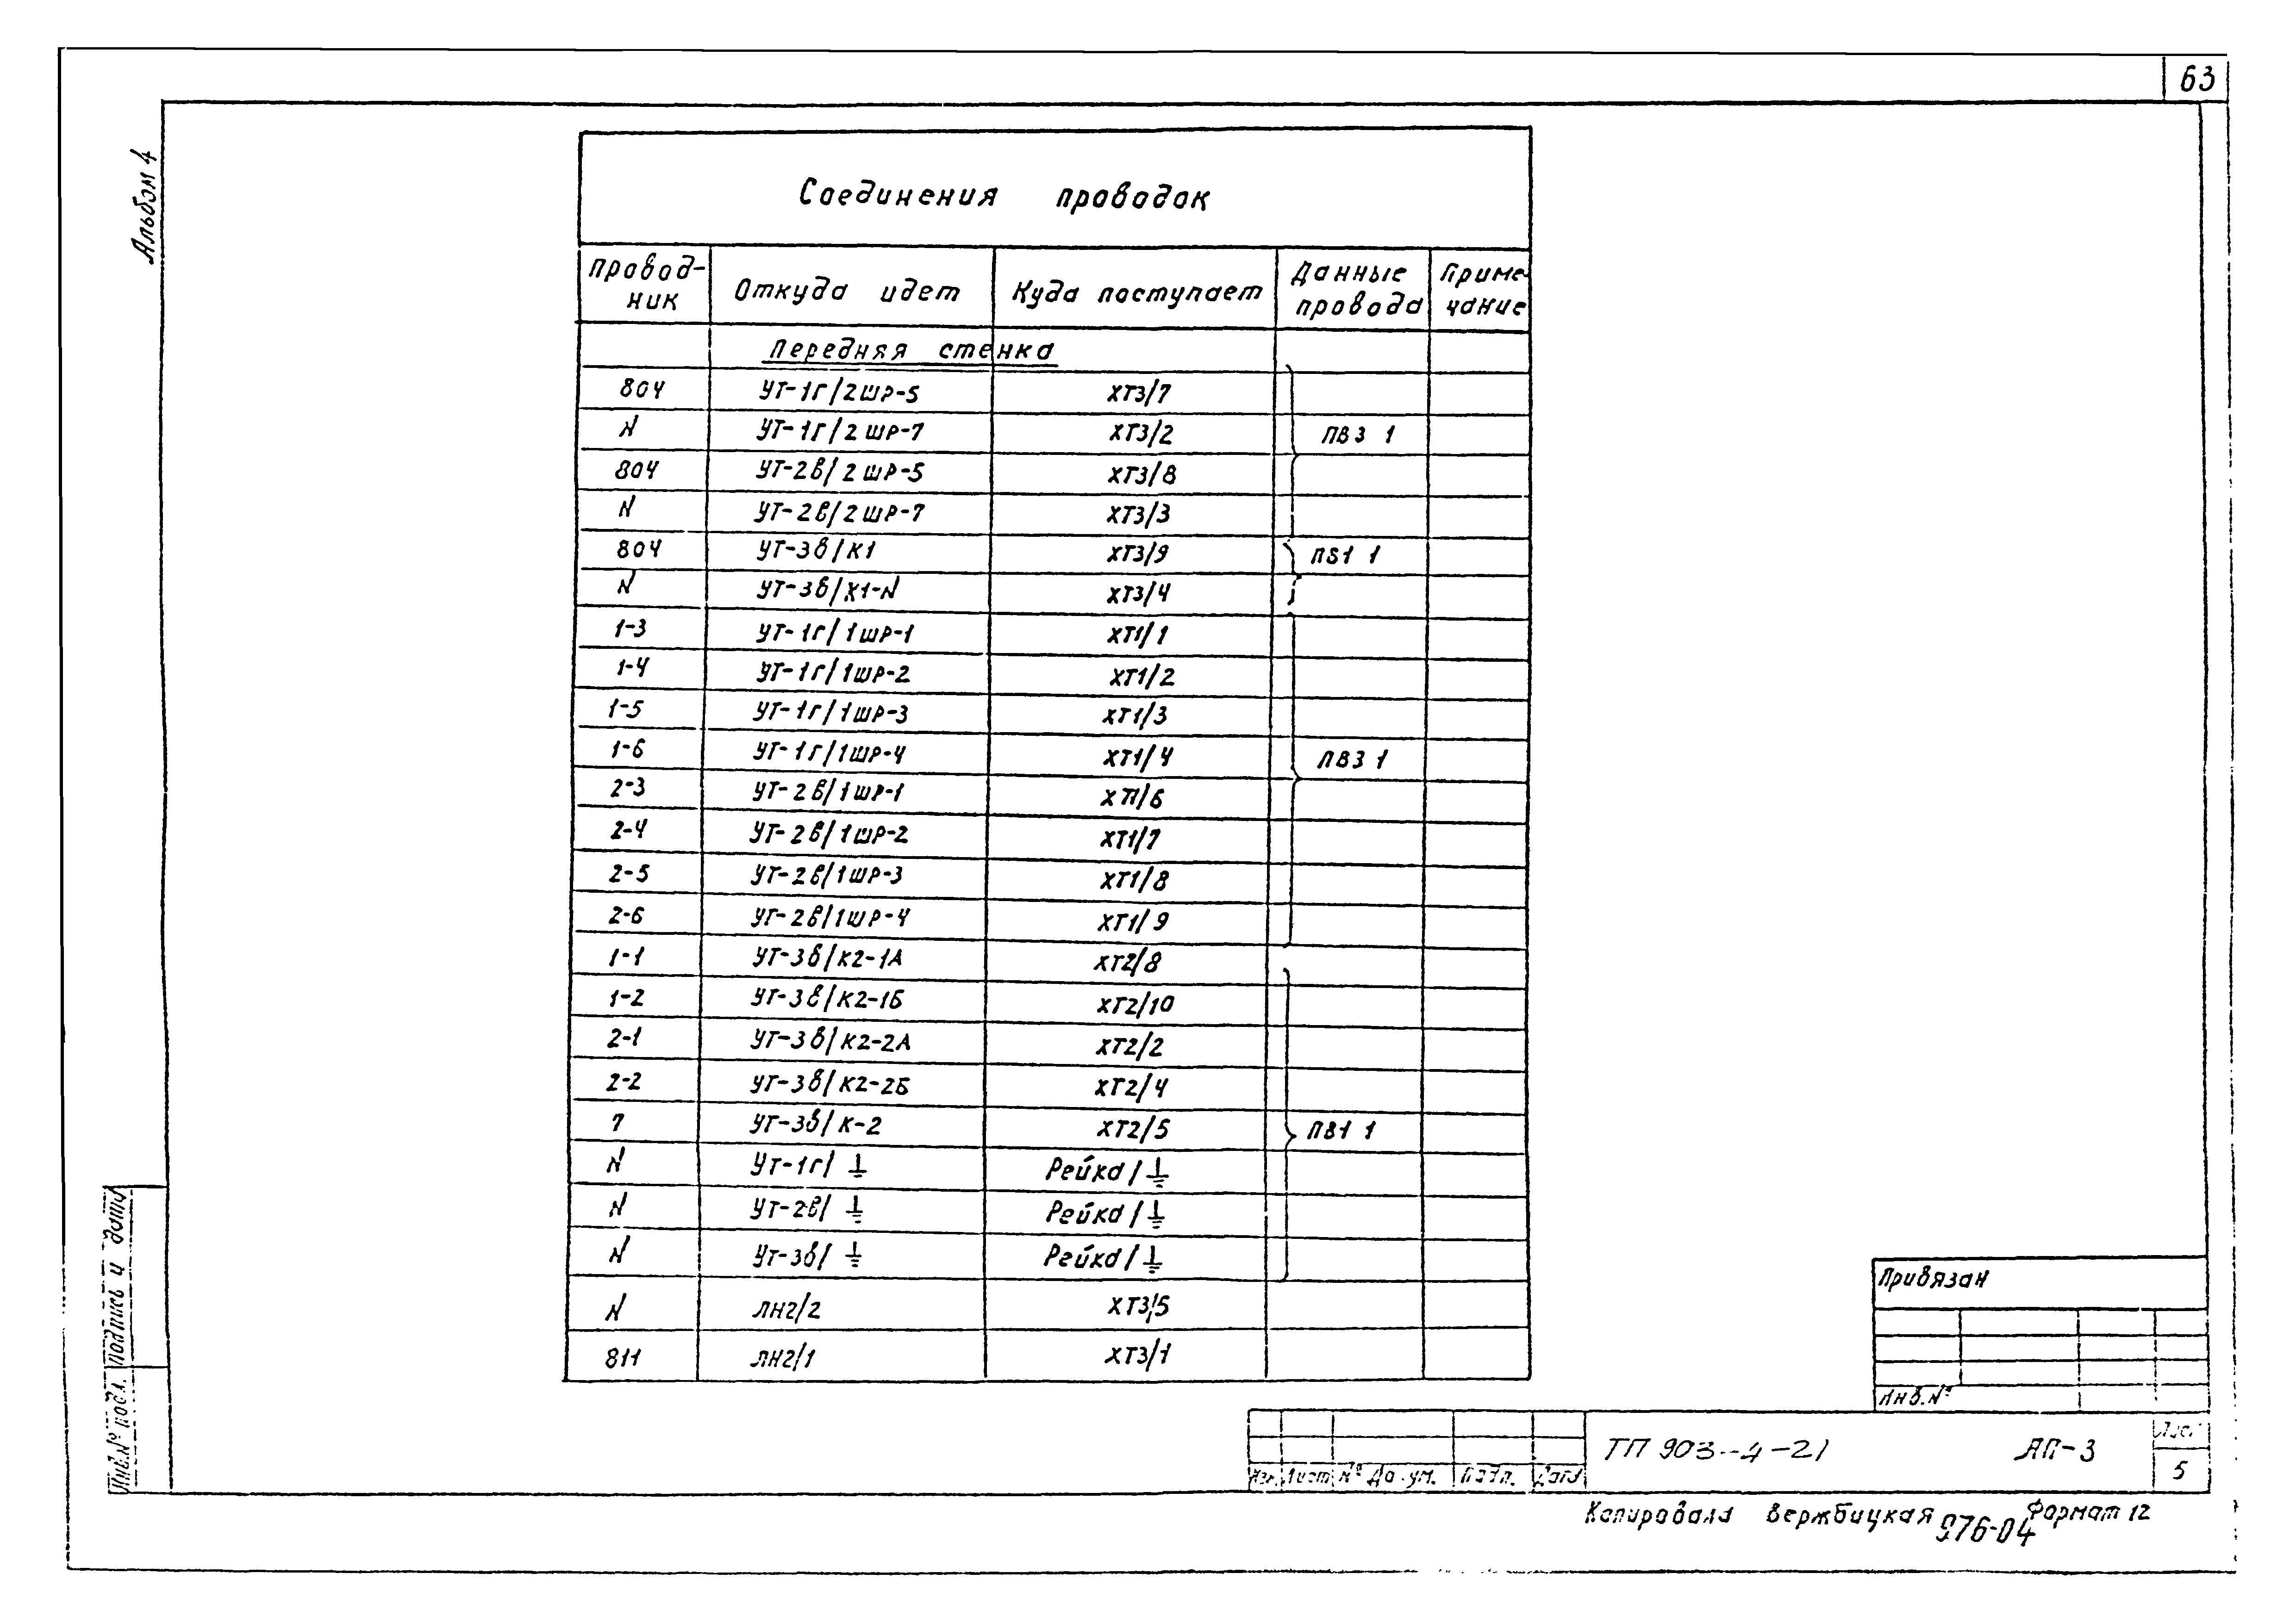 63
Альбом 4
Соединения проводок
Провод-ник | Откуда идет | Куда поступает | Данные провода | Приме-чание
Передняя стенка
804 | УТ-1г/2шр-5 | ХТ3/7
N | УТ-1г/2шр-7 | ХТ3/2 | ПВ3 1
804 | УТ-2в/2шр-5 | ХТ3/8
N | УТ-2в/2шр-7 | ХТ3/3
804 | УТ-3в/К1 | ХТ3/9 | ПВ1 1
N | УТ-3в/Х1-N | ХТ3/4
1-3 | УТ-1г/1шр-1 | ХТ1/1
1-4 | УТ-1г/1шр-2 | ХТ1/2
1-5 | УТ-1г/1шр-3 | ХТ1/3
1-6 | УТ-1г/1шр-4 | ХТ1/4 | ПВ3 1
2-3 | УТ-2в/1шр-1 | ХТ1/6
2-4 | УТ-2в/1шр-2 | ХТ1/7
2-5 | УТ-2в/1шр-3 | ХТ1/8
2-6 | УТ-2в/1шр-4 | ХТ1/9
1-1 | УТ-3в/К2-1А | ХТ2/8
1-2 | УТ-3в/К2-1Б | ХТ2/10
2-1 | УТ-3в/К2-2А | ХТ2/2
2-2 | УТ-3в/К2-2Б | ХТ2/4
7 | УТ-3в/К-2 | ХТ2/5 | ПВ1 1
N | УТ-1г/⏚ | Рейка/⏚
N | УТ-2в/⏚ | Рейка/⏚
N | УТ-3в/⏚ | Рейка/⏚
N | ЛН2/2 | ХТ3/5
811 | ЛН2/1 | ХТ3/1
Привязан
Инв.№
Изм. Лист № Докум. Подп. Дата
ТП 903-4-21 АП-3
Лист
5
Копировала Вержбицкая
976-04
Формат 12
Подпись и дата
Инв.№ подл.